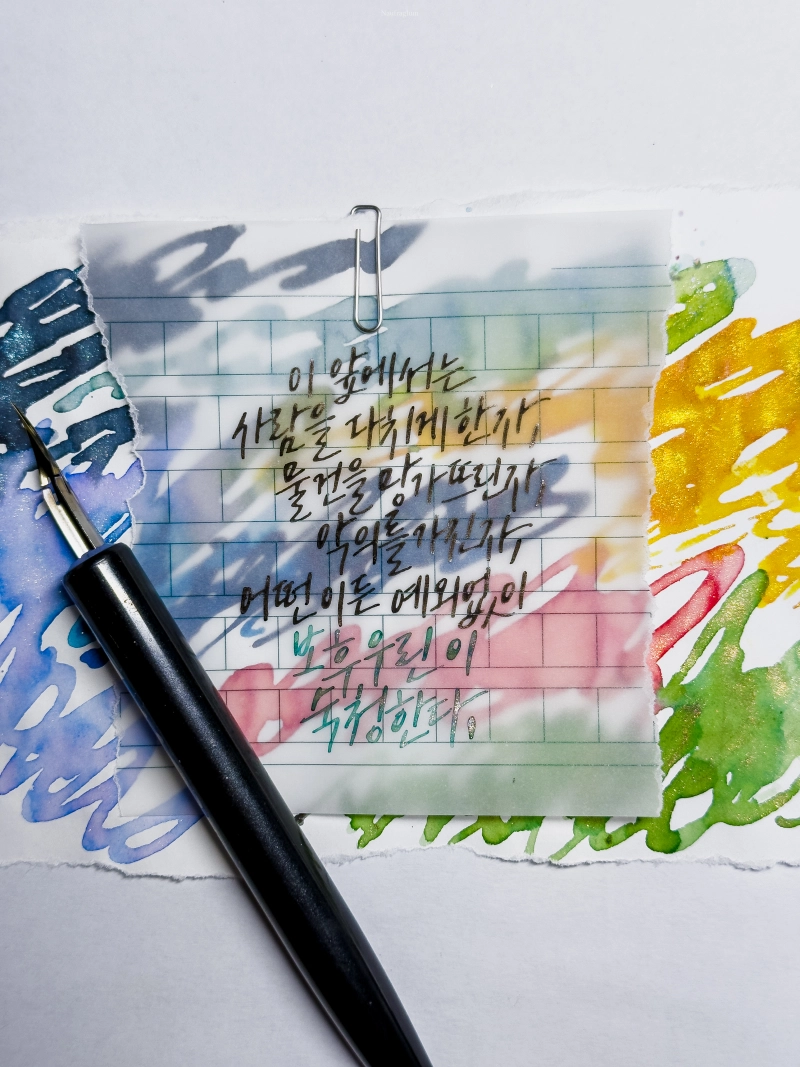 이 앞에서는
사람을 다치게 한 자,
물건을 망가뜨린 자,
악의를 가진 자,
어떤 이든 예외없이
보흐우린이
숙청한다.